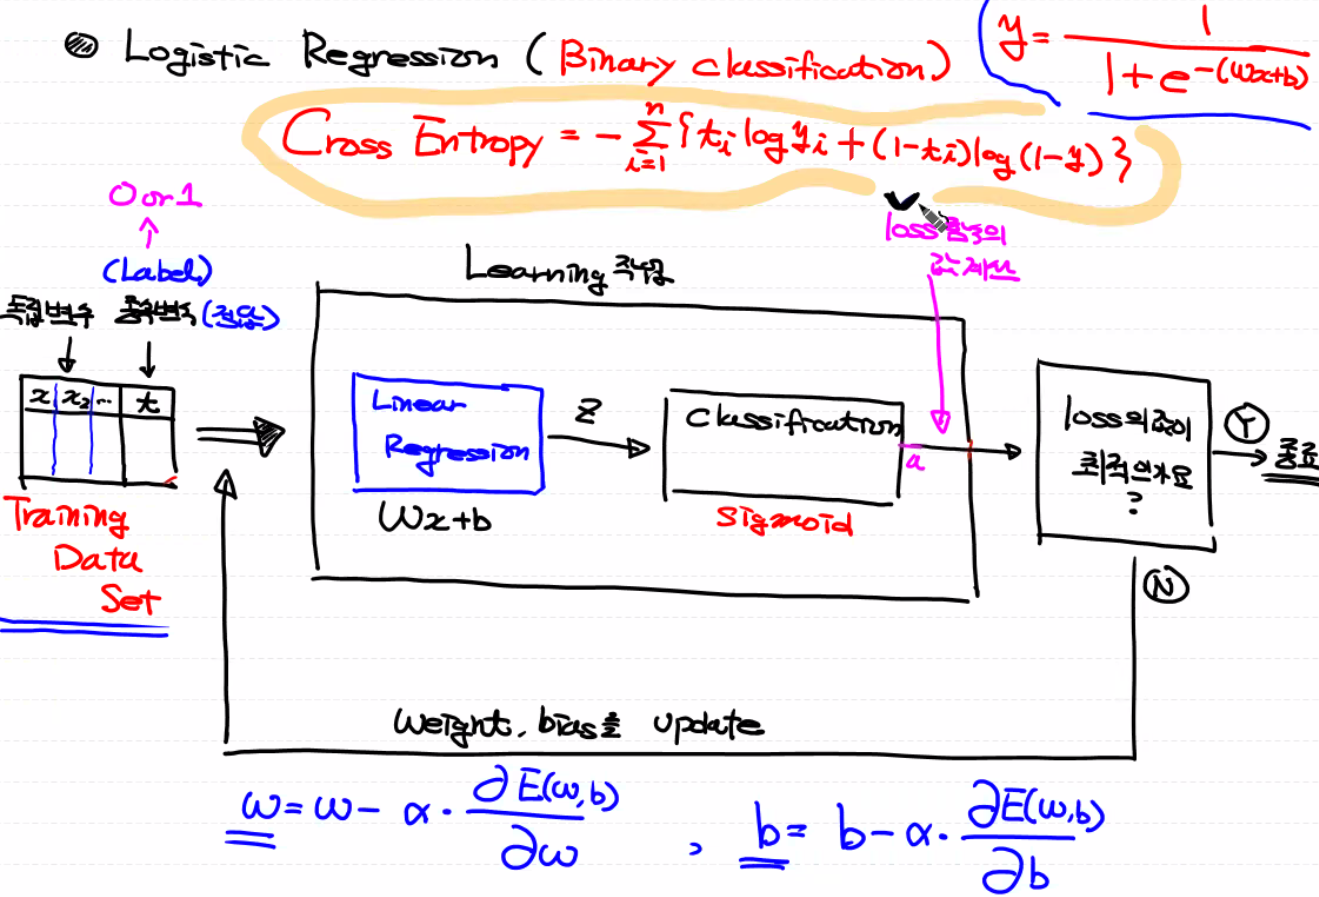 Logistic Regression (Binary classification)
y = 1 / (1 + e^-(Wx+b))
Cross Entropy = - Σ_{i=1}^{n} { t_i log y_i + (1-t_i) log (1-y) }
0 or 1
(Label)
독립변수 종속변수 (정답)
x₁ x₂ ... t
Training
Data
Set
Learning
Linear
Regression
Wx+b
Z
Classification
Sigmoid
a
loss
값 계산
loss의 값이
최적인가요
?
Y
종료
N
Weight, bias를 update
w = w - α · ∂E(w,b) / ∂w , b = b - α · ∂E(w,b) / ∂b